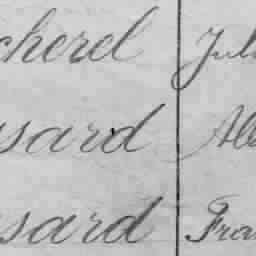 cherel Jul
ssard Al
ssard Fra